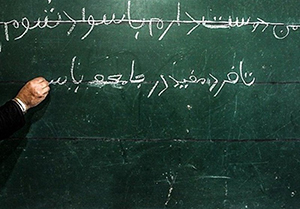 من درست دارم باسواد شوم
تا فرد مفیدی در جامعه باس